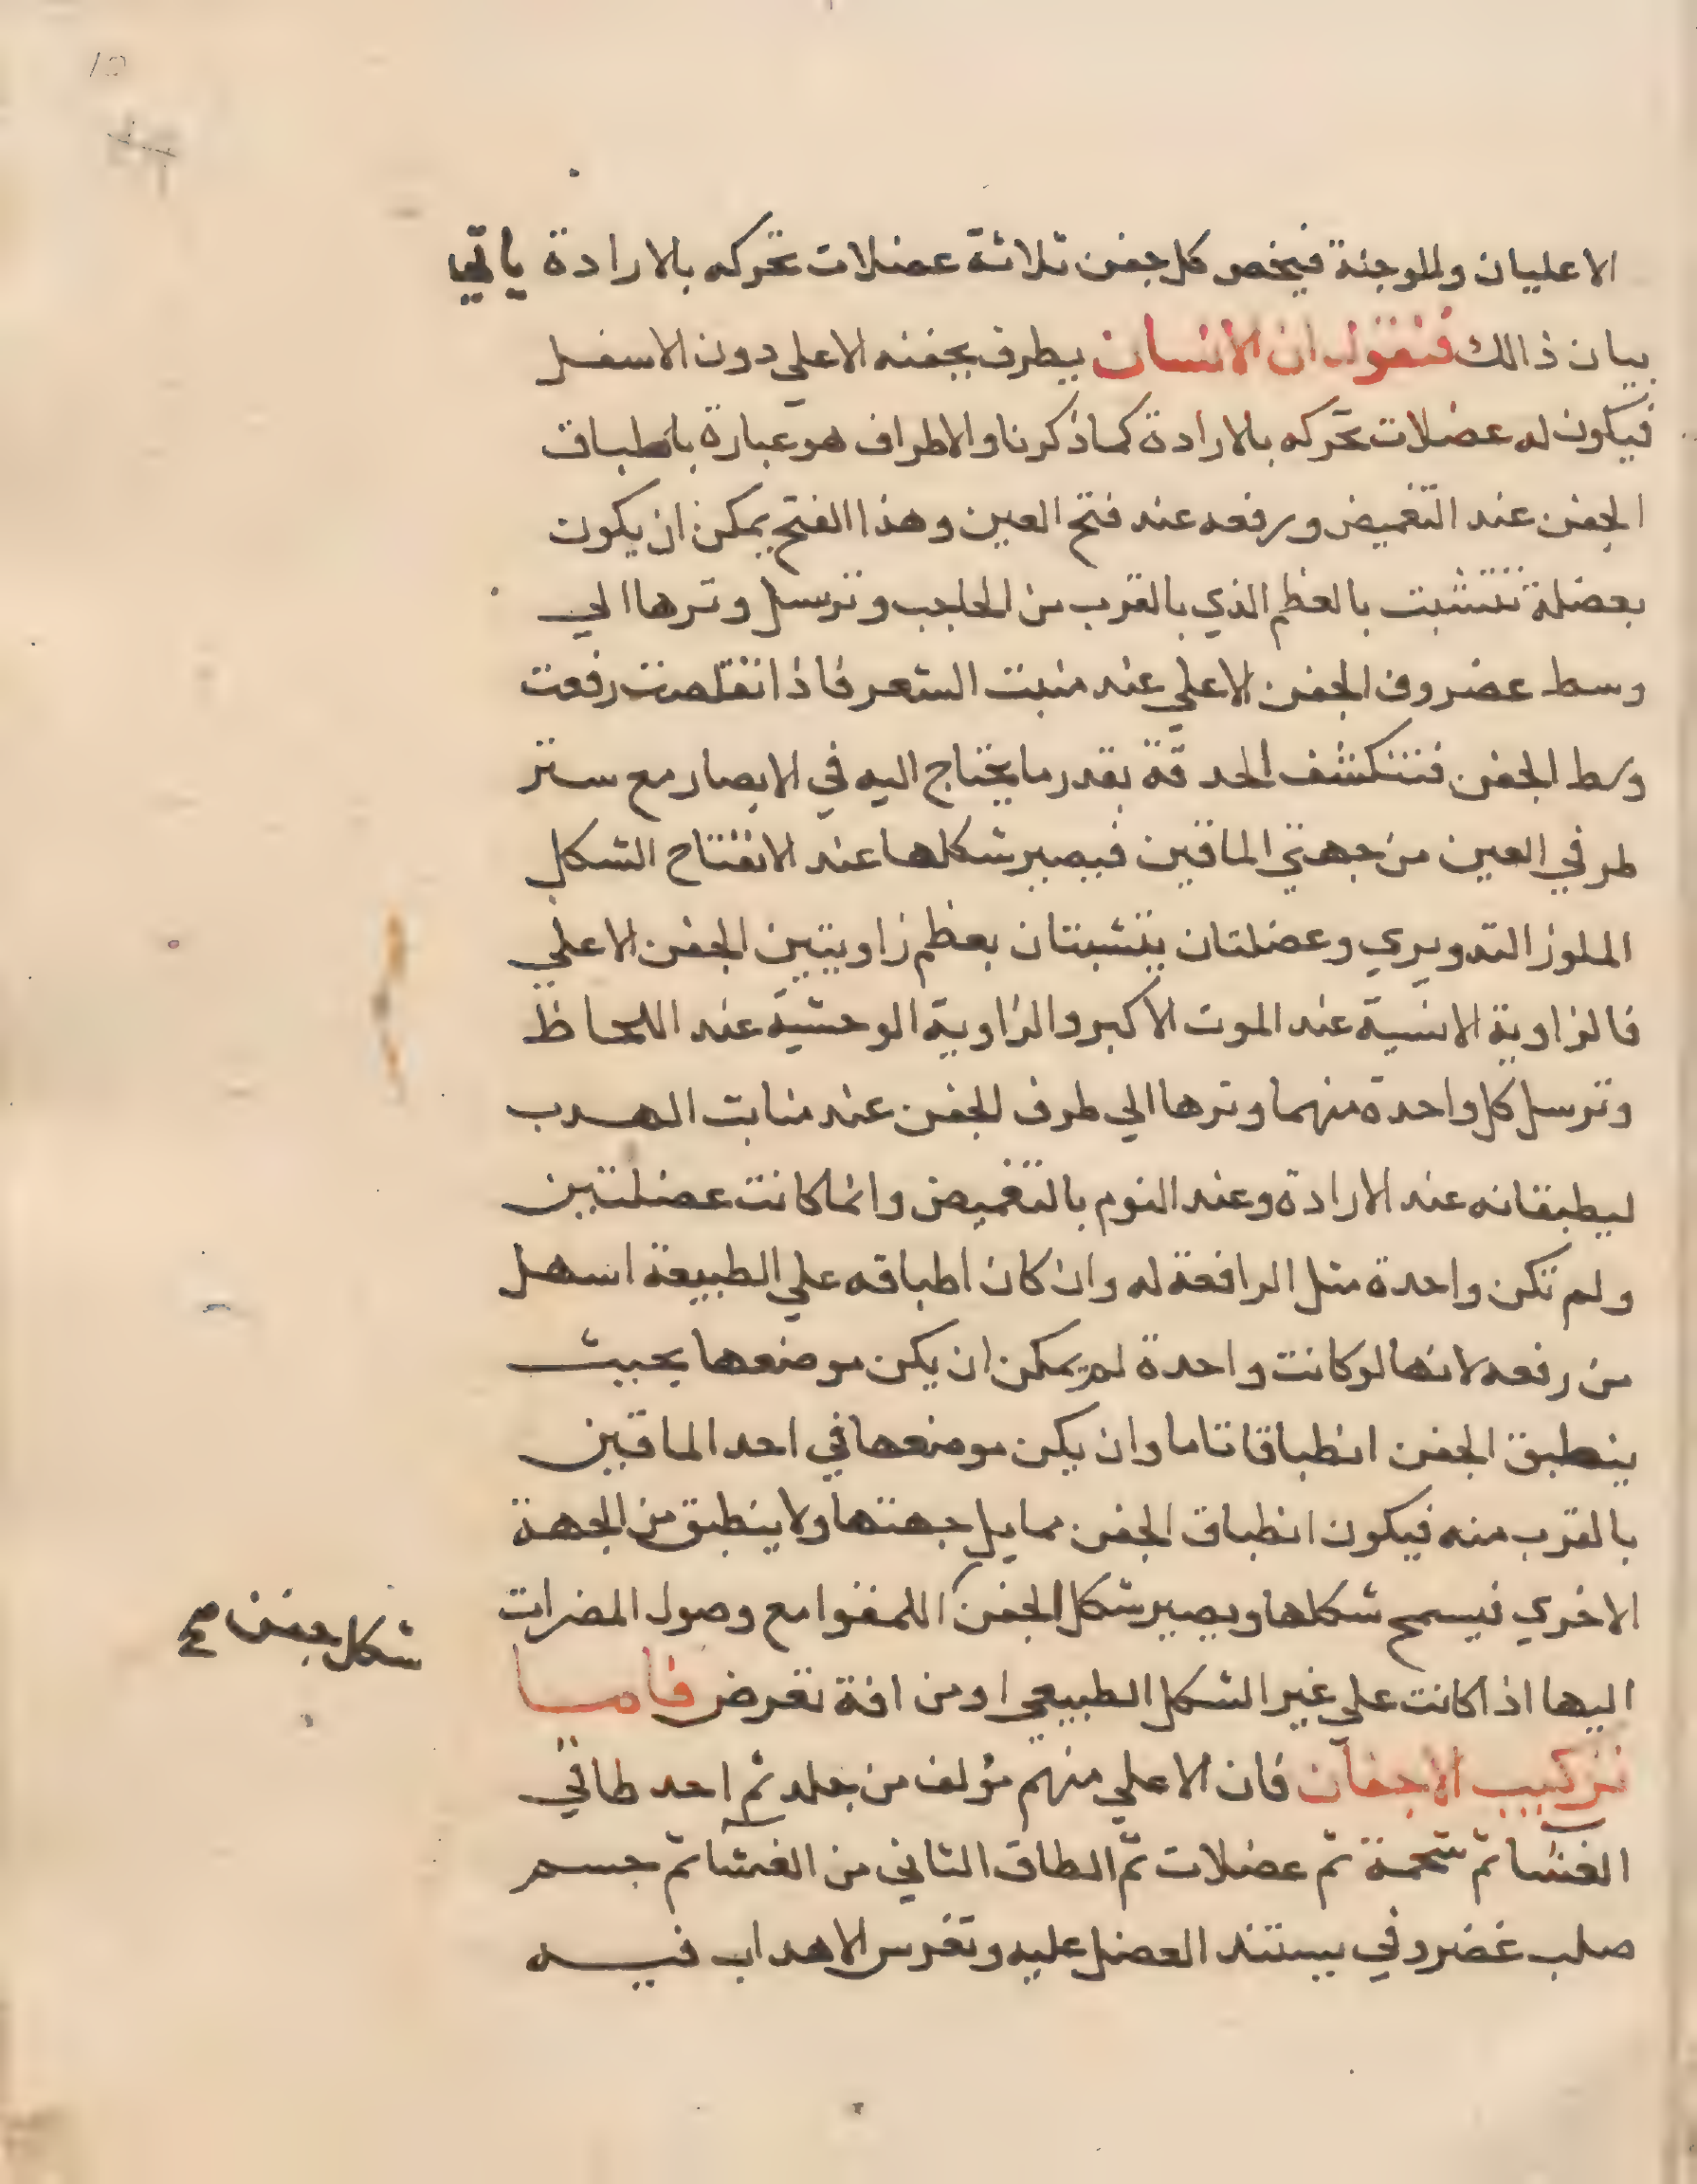 الاعليان وللوجنة فيخص كل جفن ثلاثة عضلات تحركه بالارادة ياتي
بيان ذالك فنقول ان الانسان يطرف بجفنه الاعلي دون الاسفل
فيكون له عضلات تحركه بالارادة كما ذكرنا والاطراف هو عبارة باطباق
الجفن عند التغميض ورفعه عند فتح العين وهذا الفتح يمكن ان يكون
بعضلة تتشبت بالعظم الذي بالقرب من الحاجب وترسل وترها الي
وسط عضروف الجفن الاعلي عند منبت الشعر فاذا تقلصت رفعت
وسط الجفن فتنكشف الحدقة بقدر ما يحتاج اليه في الابصار مع ستر
طرفي العين من جهتي الماقين فيصير شكلها عند الانفتاح الشكل
الملوز التدويري وعضلتان يتشبتان بعظم زاويتين الجفن الاعلي
فالزاوية الانسية عند الموت الاكبر والزاوية الوحشية عند اللحاظ
وترسل كل واحدة منهما وترها الي طرف الجفن عند منابت الهدب
ليطبقانه عند الارادة وعند النوم بالتغميض وانما كانت عضلتين
ولم تكن واحدة مثل الرافعة له وان كان اطباقه علي الطبيعة اسهل
من رفعه لانها لو كانت واحدة لم يمكن ان يكن موضعها بحيث
ينطبق الجفن انطباقا تاما وان يكن موضعها في احد الماقين
بالقرب منه فيكون انطباق الجفن مما يلي جهتها ولا ينطبق من الجهة
الاخري فيسمج شكلها ويصير شكل الجفن اللمفوا مع وصول المضرات
شكل جفن صح
اليها اذا كانت علي غير الشكل الطبيعي او من افة تعرض فاما
تركيب الاجفان فان الاعلي منهم مؤلف من جلد ثم احد طاقي
الغشا ثم شحمة ثم عضلات ثم الطاق الثاني من الغشا ثم جسم
صلب غضروفي يستند العضل عليه وتغرس الاهداب فيه